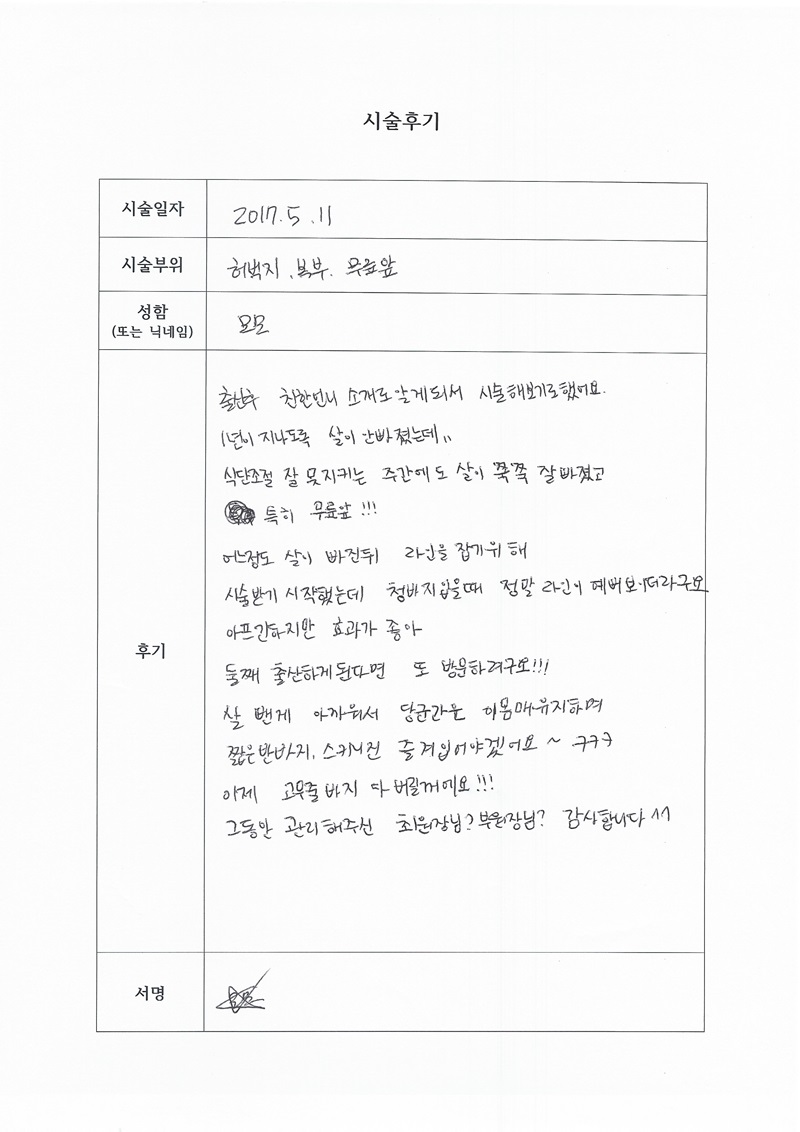 시술후기
시술일자
2017. 5. 11
시술부위
허벅지, 복부, 무릎앞
성함
(또는 닉네임)
모모
후기
출산후 친한언니 소개로 알게되서 시술해보기로했어요.
1년이 지나도록 살이 안빠졌는데,,
식단조절 잘 못지키는 주간에도 살이 쭉쭉 잘빠졌고
특히 무릎앞!!!
어느정도 살이 빠진뒤 라인을 잡기위해
시술받기 시작했는데 청바지입을때 정말 라인이 예뻐보이더라구요
아프긴하지만 효과가 좋아
둘째 출산하게된다면 또 방문하려구요!!!
살 뺀게 아까워서 당분간은 이몸매유지하며
짧은반바지, 스키니진 즐겨입어야겠어요 ~ ㅋㅋㅋ
이제 고무줄바지 다 버릴꺼에요!!!
그동안 관리해주신 최원장님? 부원장님? 감사합니다 ^^
서명